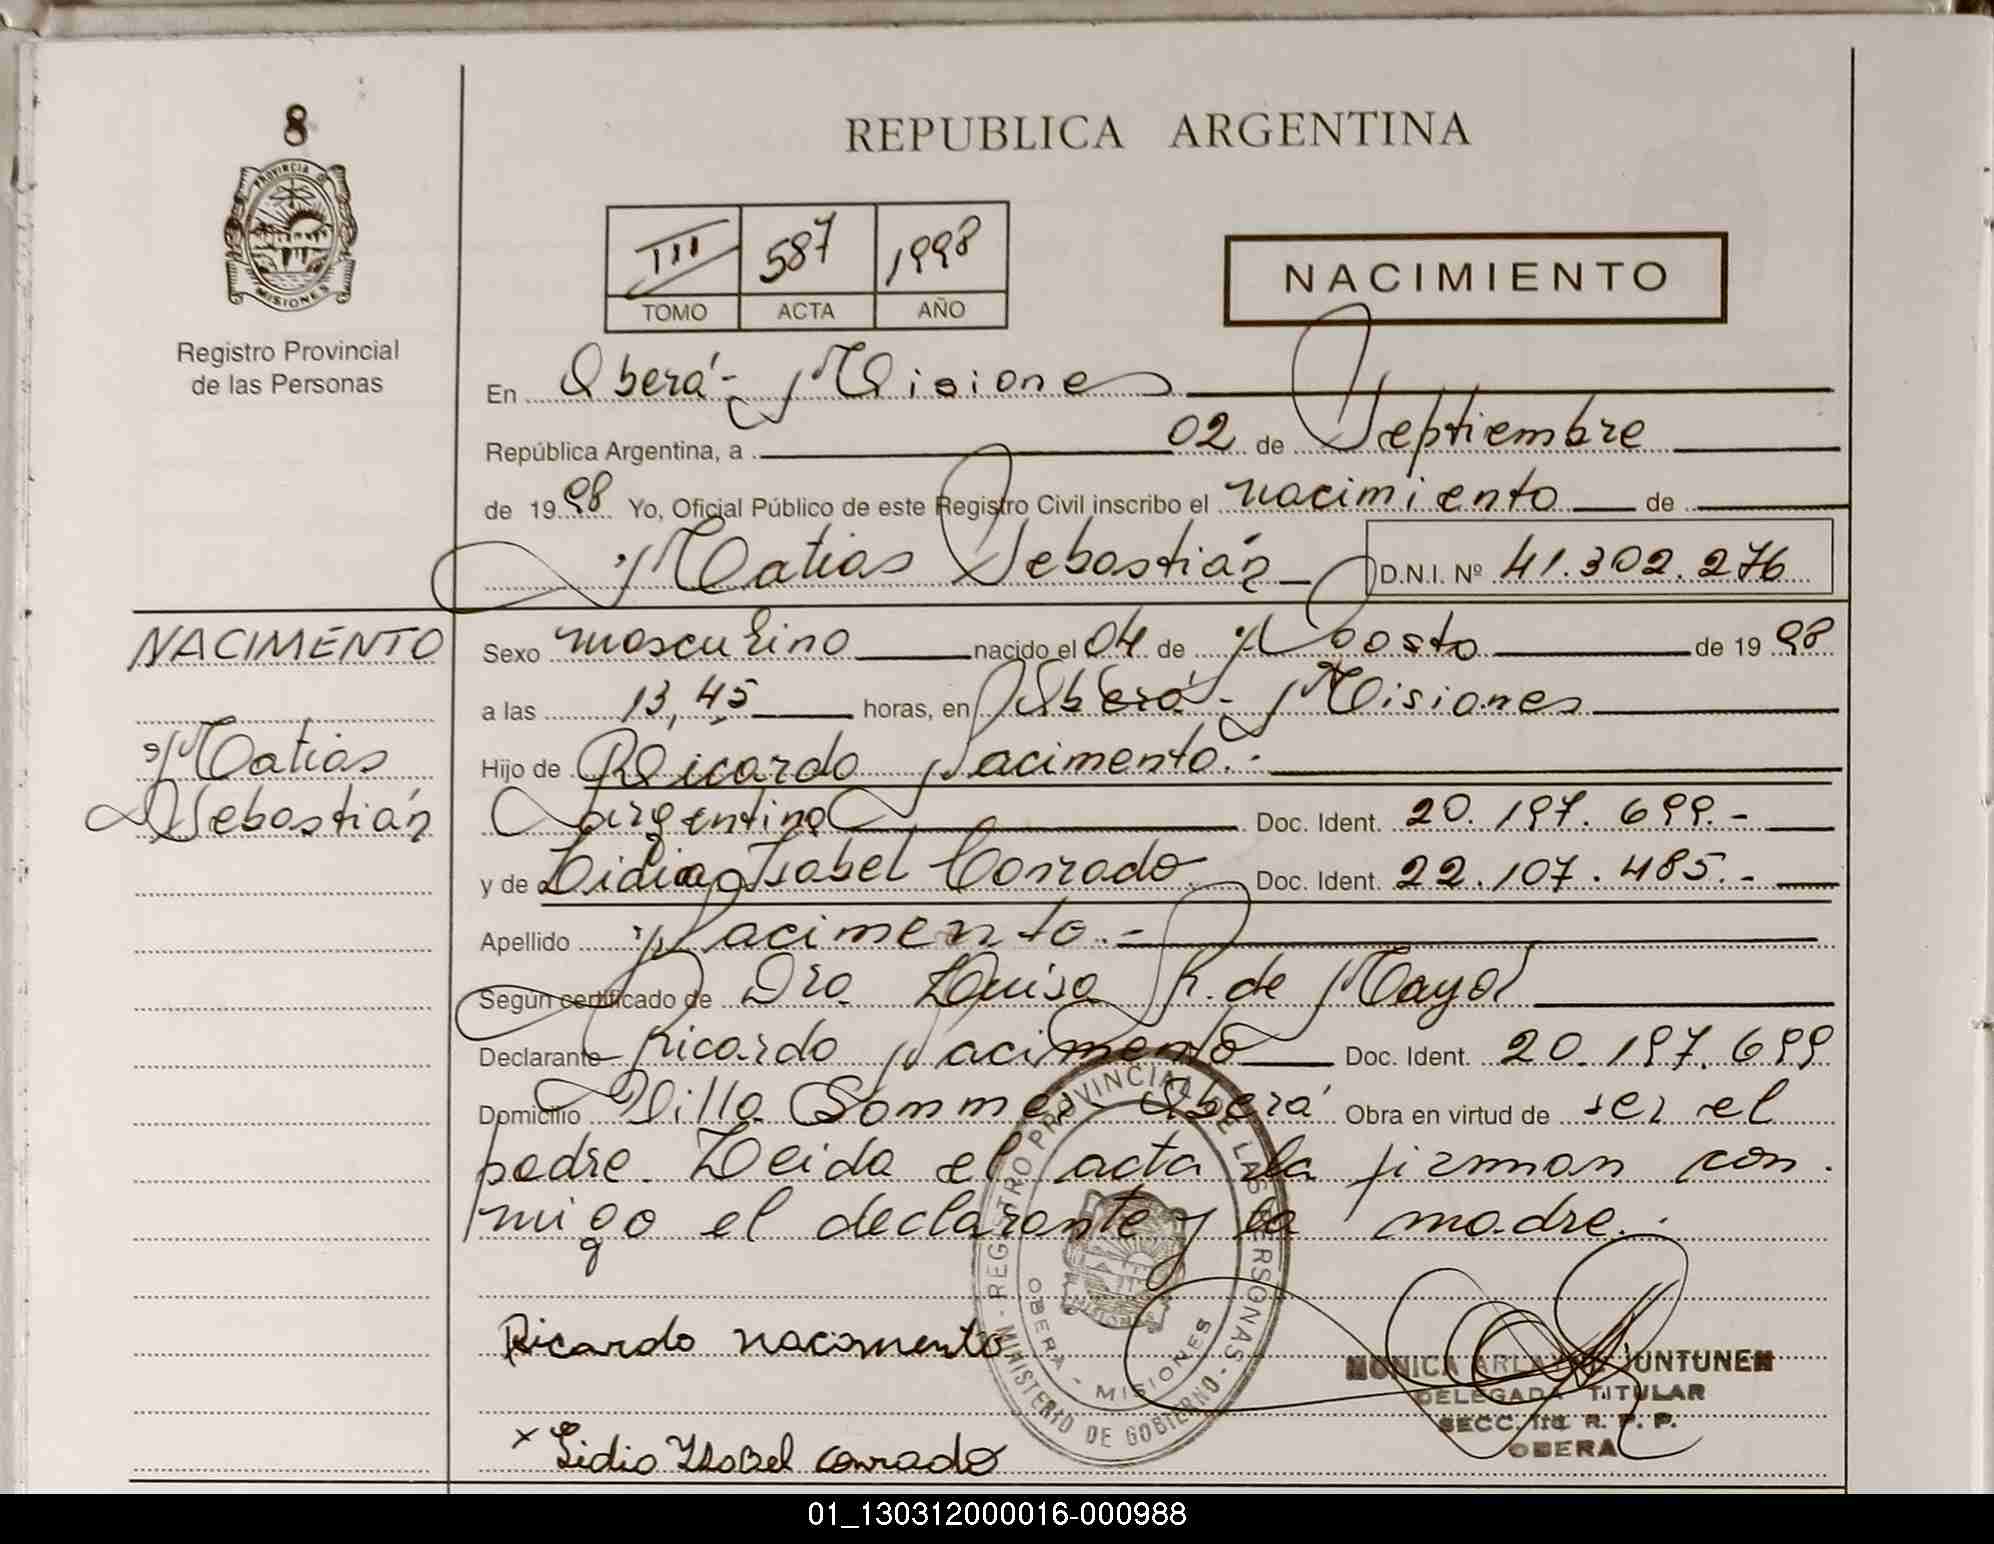 8
PROVINCIA D
MISIONES
Registro Provincial
de las Personas
REPUBLICA ARGENTINA
III 587 1998
TOMO ACTA AÑO
NACIMIENTO
En Oberá - Misiones
República Argentina, a 02 de Septiembre
de 1998 Yo, Oficial Público de este Registro Civil inscribo el nacimiento de
Matias Sebastián D.N.I. Nº 41.302.276
NACIMENTO
Matias
Sebastián
Sexo masculino nacido el 04 de Agosto de 1998
a las 13,45 horas, en Oberá - Misiones
Hijo de Ricardo Nacimento.-
argentino Doc. Ident. 20.197.699.-
y de Lidia Isabel Conrado Doc. Ident. 22.107.485.-
Apellido Nacimento.-
Según certificado de Dra Luisa R. de Mayol
Declarante Ricardo Nacimento Doc. Ident. 20.197.699
Domicilio Villa Sommer Oberá Obra en virtud de ser el
padre. Leida el acta la firman con
migo el declarante y la madre.
Ricardo nacimento
x Lidia Isabel conrado
REGISTRO PROVINCIAL DE LAS PERSONAS - MINISTERIO DE GOBIERNO -
OBERA - MISIONES
MONICA JUNTUNEN
DELEGADA TITULAR
SECC. 1ra. R. P. P.
OBERA
01_130312000016-000988